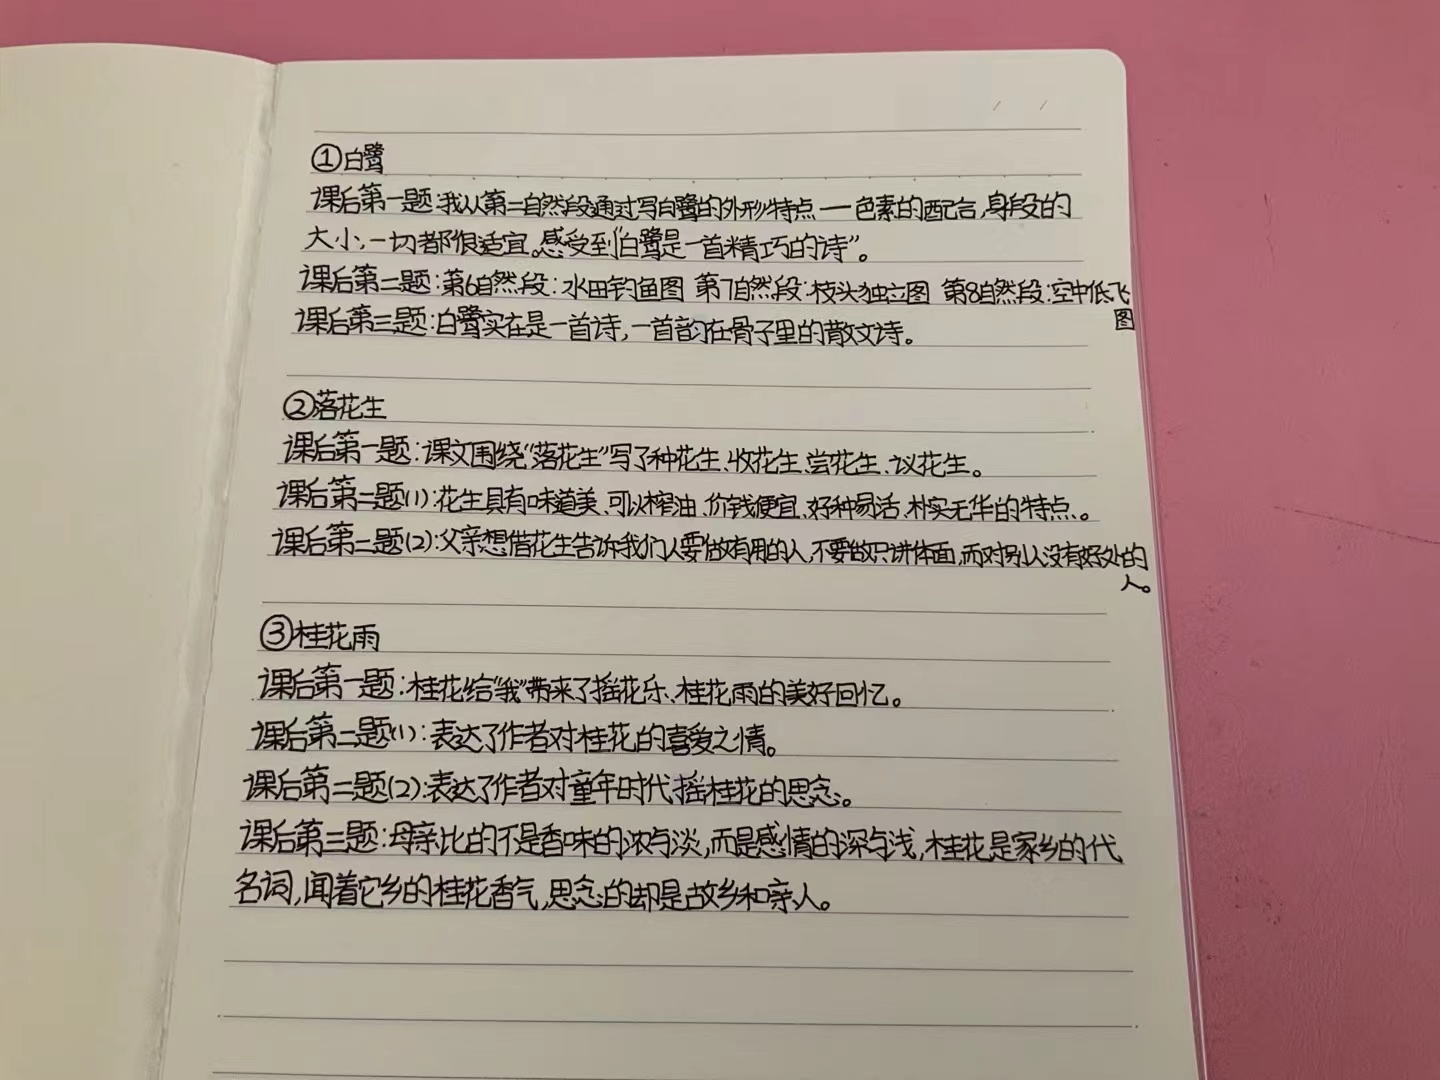 ①白鹭
课后第一题:我从第二自然段通过写白鹭的外形特点一一色素的配合,身段的
大小,一切都很适宜。感受到“白鹭是一首精巧的诗”。
课后第二题:第6自然段:水田钓鱼图 第7自然段:枝头独立图 第8自然段:空中低飞
图
课后第三题:白鹭实在是一首诗,一首韵在骨子里的散文诗。
②落花生
课后第一题:课文围绕“落花生”写了种花生、收花生、尝花生、议花生。
课后第二题(1):花生具有味道美、可以榨油、价钱便宜、好种易活、朴实无华的特点。
课后第二题(2):父亲想借花生告诉我们人要做有用的人,不要做只讲体面,而对别人没有好处的
人。
③桂花雨
课后第一题:桂花给“我”带来了摇花乐、桂花雨的美好回忆。
课后第二题(1):表达了作者对桂花的喜爱之情。
课后第二题(2):表达了作者对童年时代摇桂花的思念。
课后第三题:母亲比的不是香味的浓与淡,而是感情的深与浅,桂花是家乡的代
名词,闻着它乡的桂花香气,思念的却是故乡和亲人。